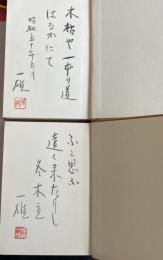 木枯や一本の道
はるかにて
昭和五十年五月
一雄
ふと思ふ
遠く来たりし
冬木立
一雄